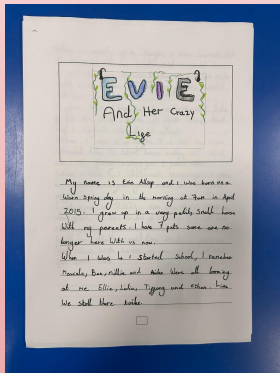 EVIE
And Her Crazy
Life
My name is Evie Allsop and I was born on a
Warm Spring day in the morning at 7am in April
2015. I grew up in a very petite, small house
With my parents. I have 7 pets some are no
longer here with us now.
When I was 4 I started School, I remember
Bea, Millie and were all looming
at me Ellie, Lukas, Tiffany and Ethan.
We there